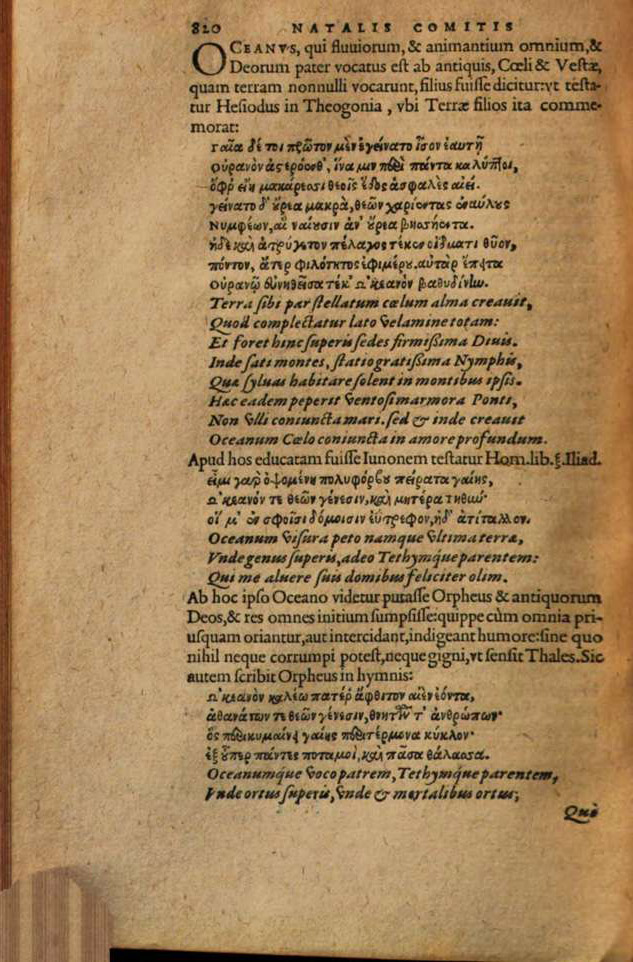 820 NATALIS COMITIS
OCEANVS, qui fluuiorum, & animantium omnium, &
Deorum pater vocatus est ab antiquis, Cœli & Vestæ,
quam terram nonnulli vocarunt, filius fuisse dicitur: vt testa-
tur Hesiodus in Theogonia, vbi Terræ filios ita comme-
morat:
Γαῖα δέ τοι πρῶτον μὲν ἐγείνατο ἶσον ἑαυτῇ
Οὐρανὸν ἀστερόενθ', ἵνα μιν περὶ πάντα καλύπτοι,
ὄφρ' εἴη μακάρεσσι θεοῖς ἕδος ἀσφαλὲς αἰεί.
γείνατο δ' οὔρεα μακρὰ, θεῶν χαρίεντας ἐναύλους
Νυμφέων, αἳ ναίουσιν ἀν' οὔρεα βησσήεντα.
ἠδὲ καὶ ἀτρύγετον πέλαγος τέκεν οἴδματι θῦον,
πόντον, ἄτερ φιλότητος ἐφιμέρου. αὐτὰρ ἔπειτα
Οὐρανῷ εὐνηθεῖσα τέκ' Ὠκεανὸν βαθυδίνην.
Terra sibi par stellatum cœlum alma creauit,
Quod complectatur lato velamine totam:
Et foret hinc superis sedes firmißima Diuis.
Inde sati montes, statio gratißima Nymphis,
Quæ syluas habitare solent in montibus ipsis.
Hæc eadem peperit ventosi marmora Ponti,
Non vlli coniuncta mari. sed & inde creauit
Oceanum Cœlo coniuncta in amore profundum.
Apud hos educatam fuisse Iunonem testatur Hom. lib. ξ. Iliad.
εἶμι γὰρ ὀψομένη πολυφόρβου πείρατα γαίης,
Ὠκεανόν τε θεῶν γένεσιν, καὶ μητέρα τηθύν·
οἵ μ' ἐν σφοῖσι δόμοισιν ἐΰτρεφον, ἠδ' ἀτίταλλον.
Oceanum visura peto namque vltima terræ,
Vnde genus superis, adeo Tethymque parentem:
Qui me aluere suis domibus feliciter olim.
Ab hoc ipso Oceano videtur putasse Orpheus & antiquorum
Deos, & res omnes initium sumpsisse: quippe cùm omnia pri-
usquam oriantur, aut intercidant, indigeant humore: sine quo
nihil neque corrumpi potest, neque gigni, vt sensit Thales. Sic
autem scribit Orpheus in hymnis:
Ὠκεανὸν καλέω πατέρ' ἄφθιτον αἰὲν ἐόντα,
ἀθανάτων τε θεῶν γένεσιν, θνητῶν τ' ἀνθρώπων·
ὃς περικυμαίνει γαίης περιτέρμονα κύκλον·
ἐξ οὗπερ πάντες ποταμοὶ, καὶ πᾶσα θάλασσα.
Oceanumque voco patrem, Tethymque parentem,
Vnde ortus superis, vnde & mortalibus ortus;
Quo